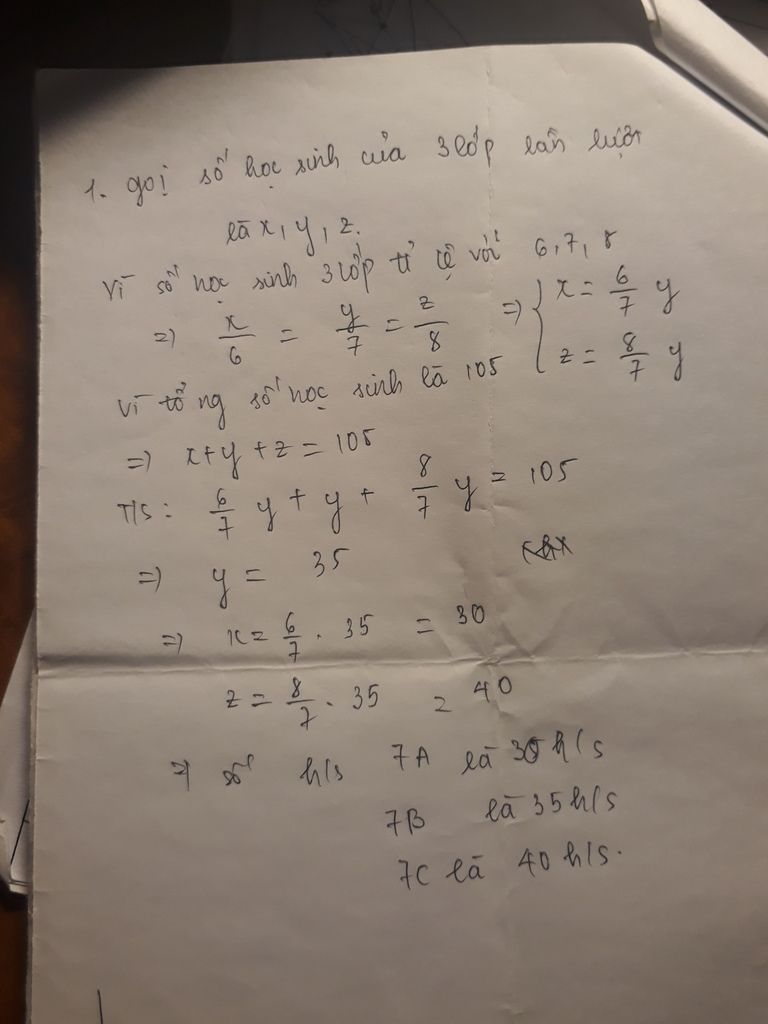 1. gọi số học sinh của 3 lớp lần lượt
là x, y, z.
Vì số học sinh 3 lớp tỉ lệ với 6, 7, 8
=> x/6 = y/7 = z/8 => { x = 6/7 y
z = 8/7 y
Vì tổng số học sinh là 105
=> x + y + z = 105
T/S: 6/7 y + y + 8/7 y = 105
=> y = 35
=> x = 6/7 . 35 = 30
z = 8/7 . 35 = 40
=> số h/s 7A là 30 h/s
7B là 35 h/s
7C là 40 h/s.